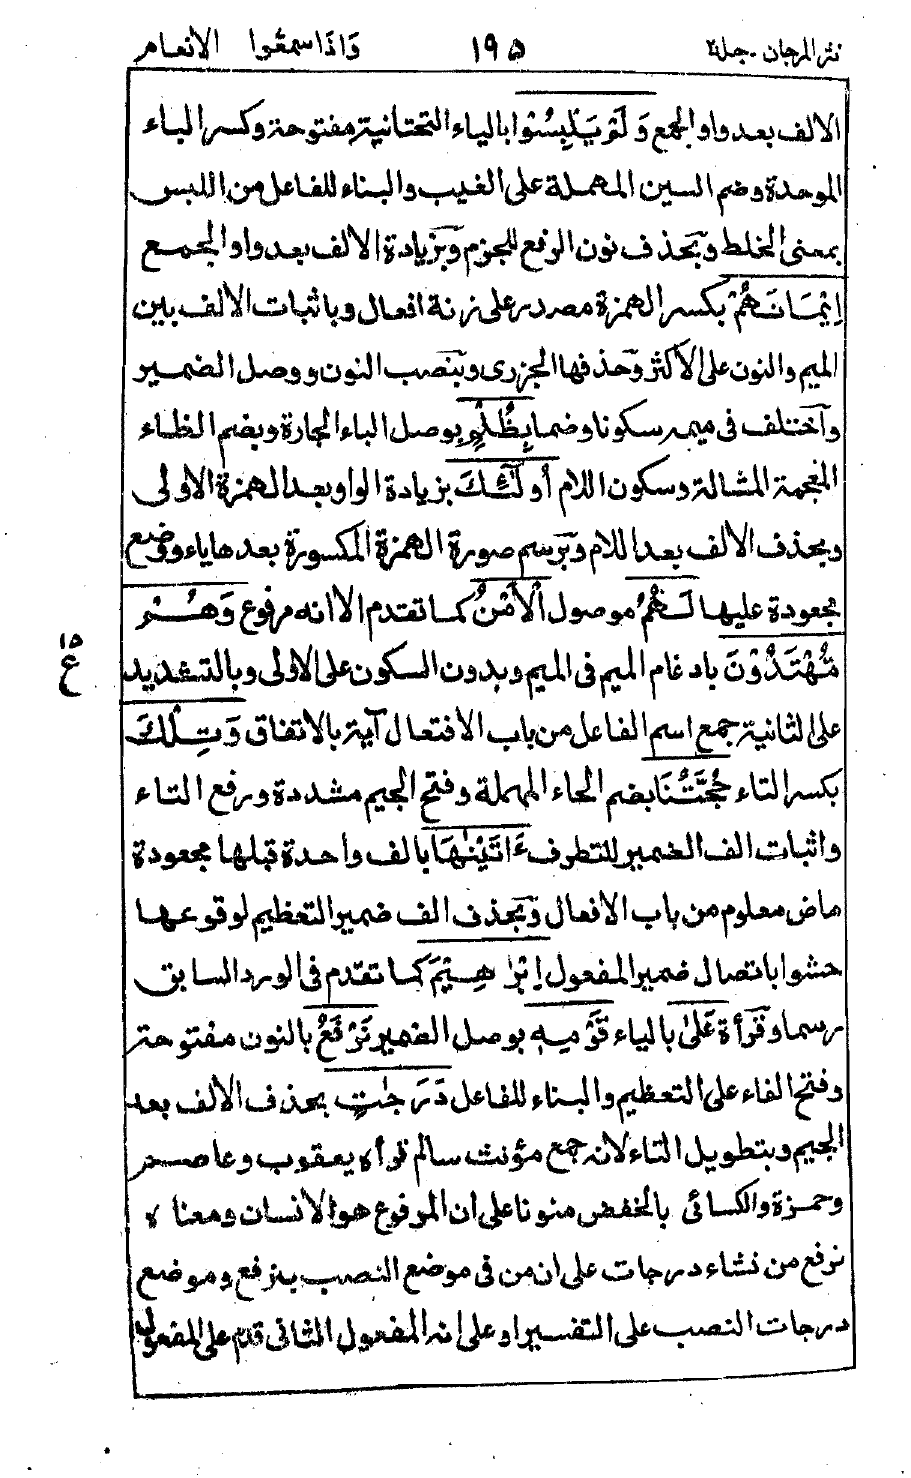 نثر المرجان ـ جلد٢ ١٩٥ وَاذَا سمعُوا الانعام
الالف بعد واو الجمع وَلَمْ يَلْبِسُوْا بالياء التحتانية مفتوحة وكسر الباء
الموحدة وضم السين المهملة على الغيب والبناء للفاعل من اللبس
بمعنى الخلط وبحذف نون الرفع للجزم وبزيادة الالف بعد واو الجمع
اِيْمَانَهُمْ بكسر الهمزة مصدر على زنة افعال وباثبات الالف بين
الميم والنون على الأكثر وحذفها الجزرى وبنصب النون ووصل الضمير
واختلف فى ميمه سكونا وضما بِظُلْمٍ بوصل الباء الجارة وبضم الظاء
المعجمة المشالة وسكون اللام أُولٰٓئِكَ بزيادة الواو بعد الهمزة الاولى
وبحذف الالف بعد اللام وبرسم صورة الهمزة المكسورة بعدها ياء ووضع
مجعودة عليها لَهُمُ موصول الْاَمْنُ كما تقدم الا انه مرفوع وَهُمْ
مُّهْتَدُوْنَ بادغام الميم فى الميم وبدون السكون على الاولى وبالتشديد
على الثانية جمع اسم الفاعل من باب الافتعال آية بالاتفاق وَتِلْكَ
بكسر التاء حُجَّتُنَا بضم الحاء المهملة وفتح الجيم مشددة ورفع التاء
واثبات الف الضمير للتطرف ءَاتَيْنٰهَا بالف واحدة قبلها مجعودة
ماض معلوم من باب الافعال وبحذف الف ضمير التعظيم لوقوعها
حشوا باتصال ضمير المفعول اِبْرٰهِيْمَ كما تقدم فى الورد السابق
رسما وقرأة عَلٰى بالياء قَوْمِهٖ بوصل الضمير نَرْفَعُ بالنون مفتوحة
وفتح الفاء على التعظيم والبناء للفاعل دَرَجٰتٍ بحذف الالف بعد
الجيم وبتطويل التاء لانه جمع مؤنث سالم قرأه يعقوب وعاصم
وحمزة والكسائى بالخفض منونا على ان المرفوع هو الانسان ومعناه
نرفع من نشاء درجات على ان من فى موضع النصب بنرفع وموضع
درجات النصب على التفسير او على انه المفعول الثانى قدم على المفعول
١٥
ع